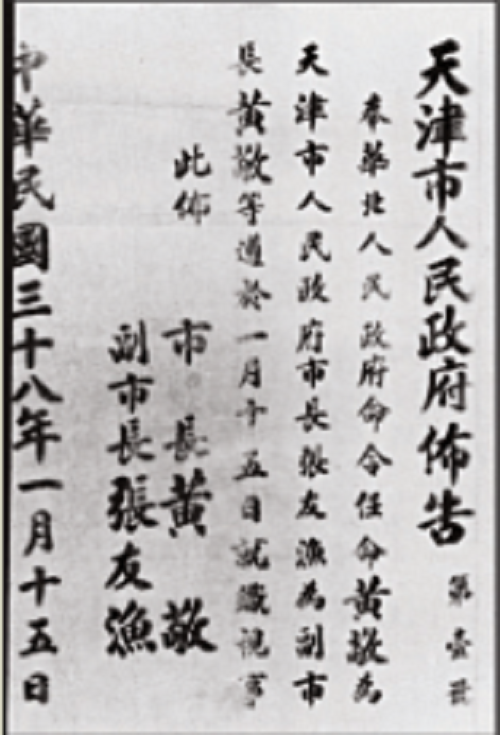 天津市人民政府佈告 第壹號
奉華北人民政府命令任命黃敬為
天津市人民政府市長張友漁為副市
長黃敬等遵於一月十五日就職視事
此佈
市長黃敬
副市長張友漁
中華民國三十八年一月十五日